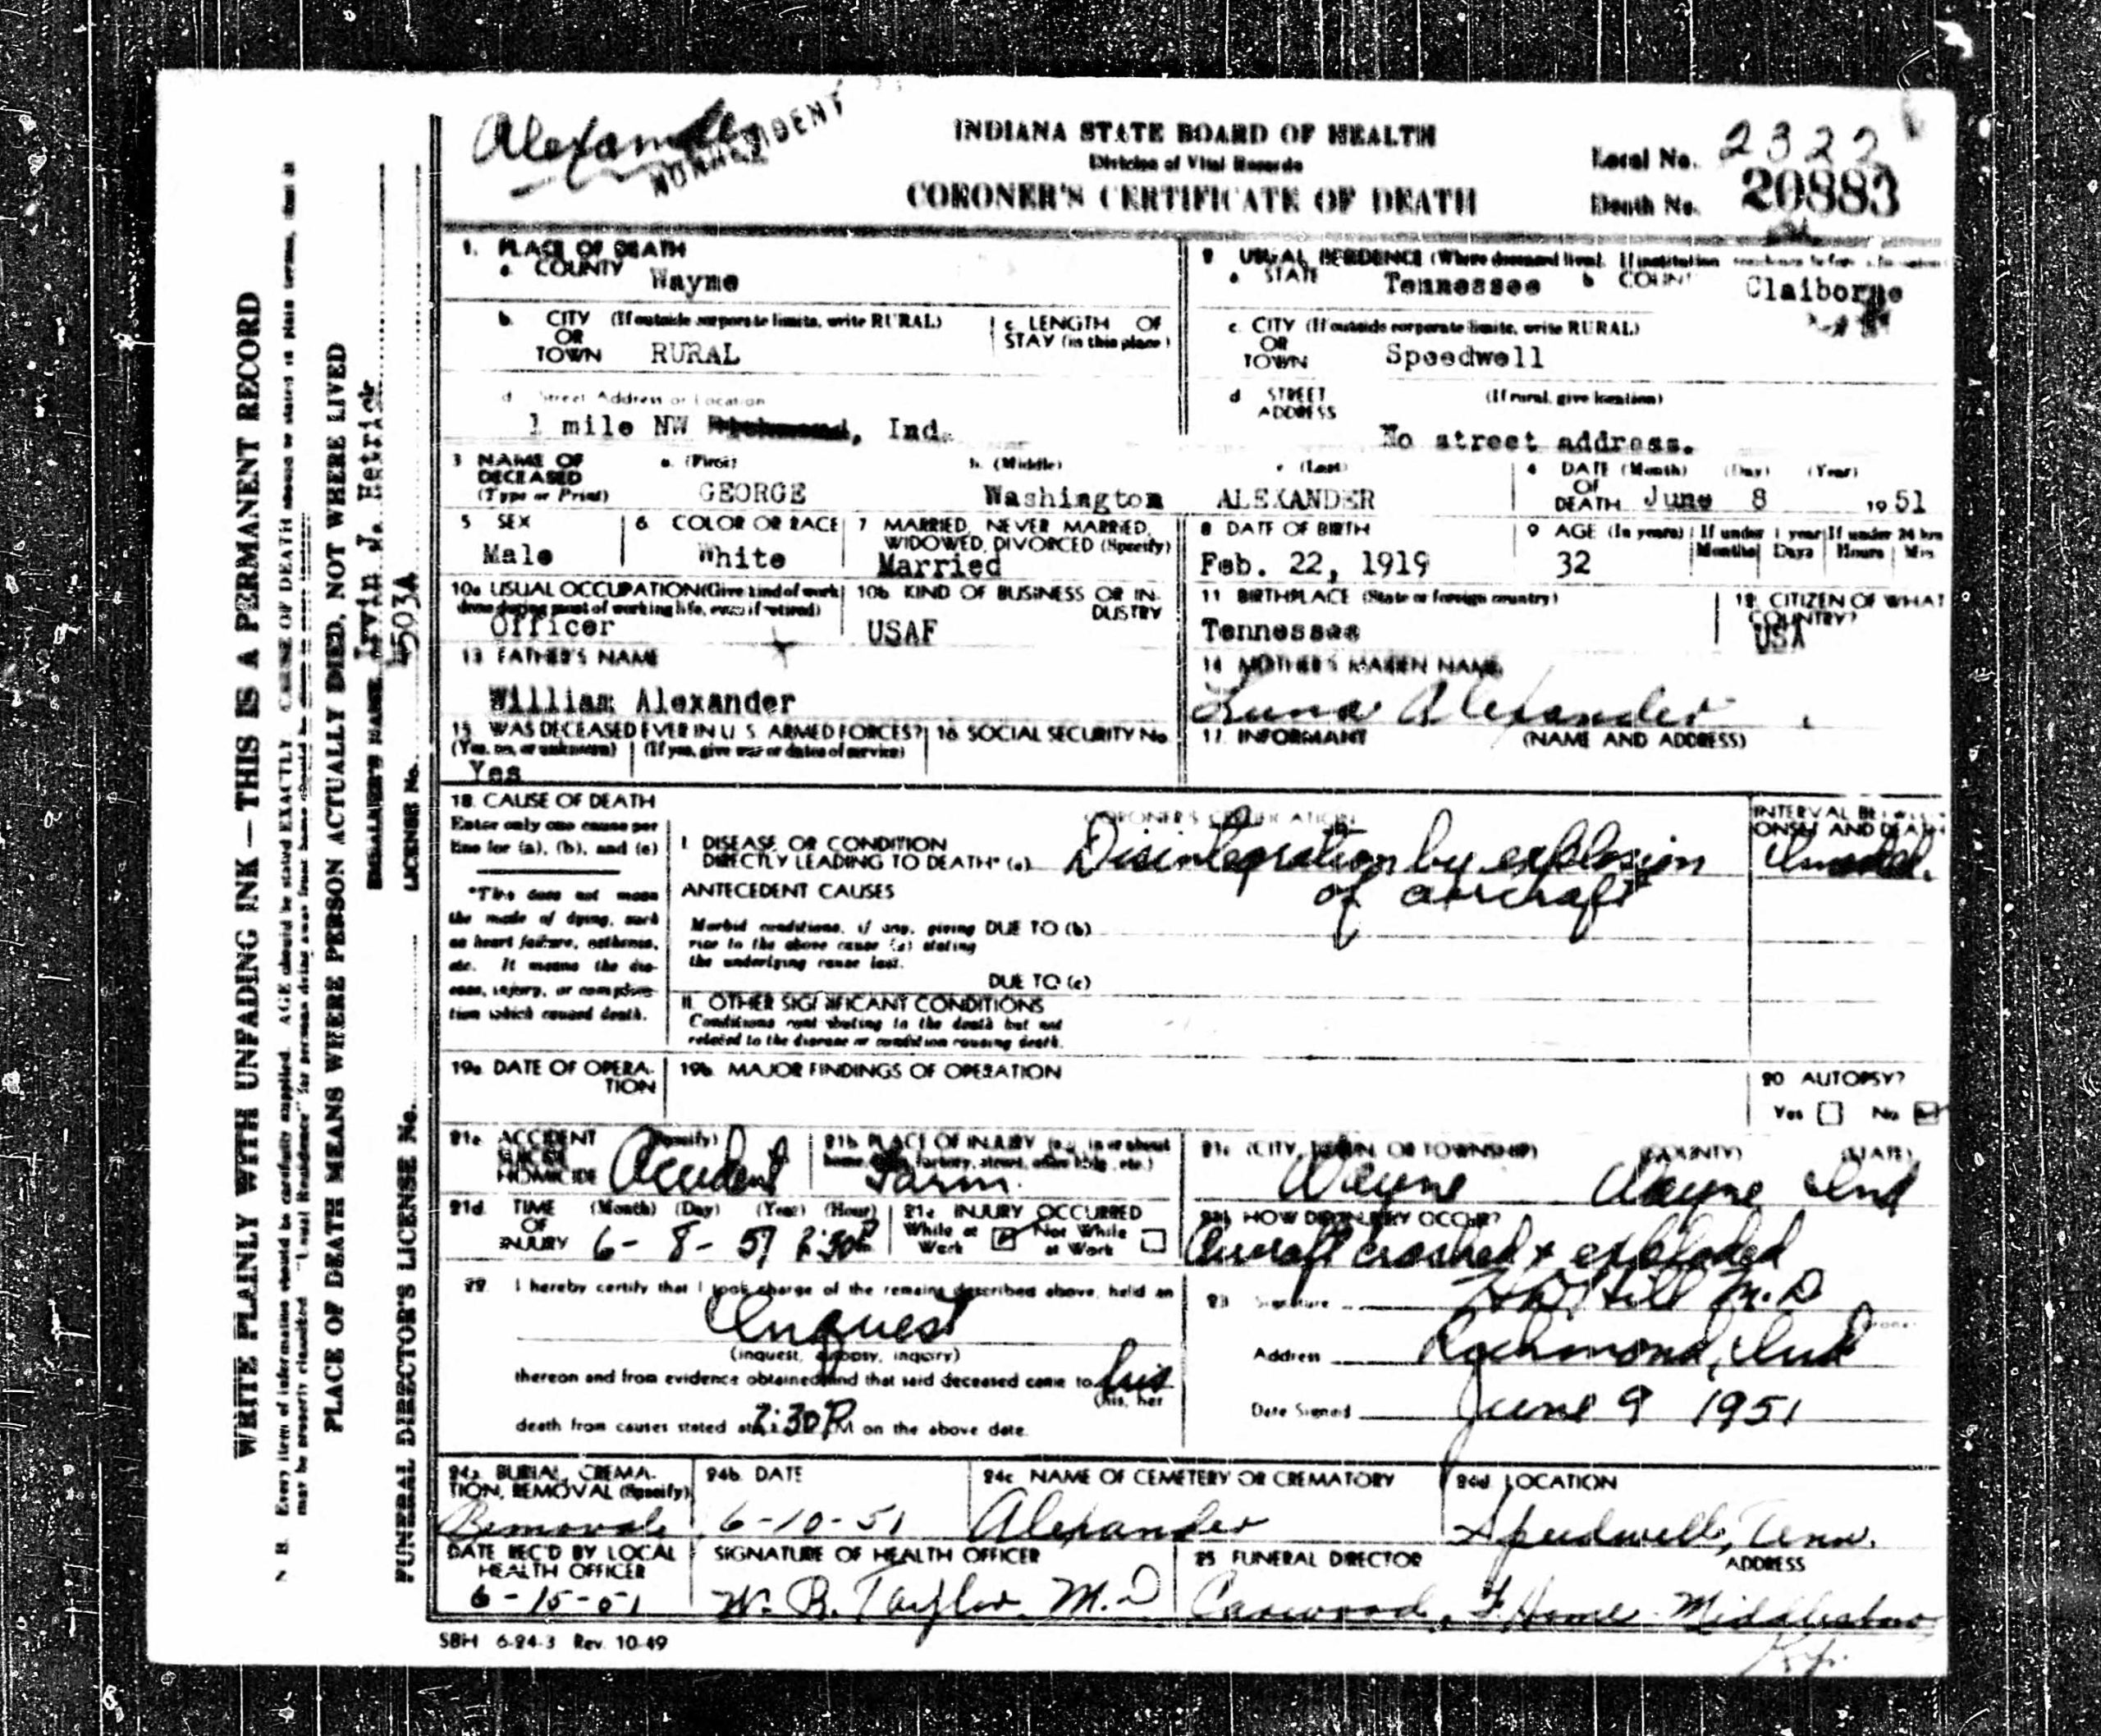 Alexander
NONRESIDENT
INDIANA STATE BOARD OF HEALTH
Division of Vital Records
CORONER'S CERTIFICATE OF DEATH
Local No. 2322
Death No. 20883
WRITE PLAINLY WITH UNFADING INK—THIS IS A PERMANENT RECORD
N. B. Every item of information should be carefully supplied. AGE should be stated EXACTLY. CAUSE OF DEATH should be stated in plain terms, that it
may be properly classified. "Usual Residence" for persons dying away from home should be
PLACE OF DEATH MEANS WHERE PERSON ACTUALLY DIED, NOT WHERE LIVED
EMBALMER'S NAME Hetrick
FUNERAL DIRECTOR'S LICENSE No. LICENSE No. 4503A
1. PLACE OF DEATH
a. COUNTY Wayne
b. CITY (If outside corporate limits, write RURAL)
OR
TOWN RURAL
c. LENGTH OF
STAY (in this place)
d. Street Address or Location
1 mile NW Richmond, Ind.
2. USUAL RESIDENCE (Where deceased lived. If institution residence before admission)
a. STATE Tennessee b. COUNTY Claiborne
c. CITY (If outside corporate limits, write RURAL)
OR
TOWN Speedwell
d. STREET (If rural, give location)
ADDRESS
No street address.
3 NAME OF a. (First) b. (Middle) c. (Last)
DECEASED
(Type or Print) GEORGE Washington ALEXANDER
4 DATE (Month) (Day) (Year)
OF
DEATH June 8 1951
5 SEX
Male
6 COLOR OR RACE
White
7 MARRIED, NEVER MARRIED,
WIDOWED, DIVORCED (Specify)
Married
8 DATE OF BIRTH
Feb. 22, 1919
9 AGE (In years) If under 1 year If under 24 hrs
Months Days Hours Min.
32
10a. USUAL OCCUPATION (Give kind of work
done during most of working life, even if retired)
Officer
10b KIND OF BUSINESS OR IN-
DUSTRY
USAF
11 BIRTHPLACE (State or foreign country)
Tennessee
12 CITIZEN OF WHAT
COUNTRY?
USA
13 FATHER'S NAME
William Alexander
14 MOTHER'S MAIDEN NAME
Luna Alexander
15 WAS DECEASED EVER IN U. S. ARMED FORCES?
(Yes, no, or unknown) (If yes, give war or dates of service)
Yes
16 SOCIAL SECURITY No.
17 INFORMANT (NAME AND ADDRESS)
18. CAUSE OF DEATH
Enter only one cause per
line for (a), (b), and (c)
*This does not mean
the mode of dying, such
as heart failure, asthenia,
etc. It means the dis-
ease, injury, or complica-
tion which caused death.
CORONER'S CERTIFICATION
I. DISEASE OR CONDITION
DIRECTLY LEADING TO DEATH* (a) Disintegration by explosion
of aircraft
INTERVAL BETWEEN
ONSET AND DEATH
ANTECEDENT CAUSES
Morbid conditions, if any, giving DUE TO (b)
rise to the above cause (a) stating
the underlying cause last.
DUE TO (c)
II. OTHER SIGNIFICANT CONDITIONS
Conditions contributing to the death but not
related to the disease or condition causing death.
19a DATE OF OPERA-
TION
19b. MAJOR FINDINGS OF OPERATION
20 AUTOPSY?
Yes No
21a ACCIDENT (Specify)
SUICIDE
HOMICIDE Accident
21b PLACE OF INJURY (e.g., in or about
home, farm, factory, street, office bldg., etc.)
Farm.
21c (CITY, TOWN, OR TOWNSHIP) (COUNTY) (STATE)
Wayne Wayne Ind
21d. TIME (Month) (Day) (Year) (Hour)
OF
INJURY 6- 8- 51 2:30P
21e INJURY OCCURRED
While at Not While
Work at Work
21f. HOW DID INJURY OCCUR?
Aircraft crashed & exploded
22 I hereby certify that I took charge of the remains described above, held an
Inquest
(inquest, autopsy, inquiry)
thereon and from evidence obtained find that said deceased came to his
(his, her
death from causes stated at 2:30 P M on the above date.
23 Signature Hill M.D.
Coroner
Address Richmond, Ind
Date Signed June 9 1951
24a BURIAL, CREMA-
TION, REMOVAL (Specify)
Removal
24b DATE
6-10-51
24c NAME OF CEMETERY OR CREMATORY
Alexander
24d LOCATION
Speedwell, Tenn.
DATE REC'D BY LOCAL
HEALTH OFFICER
6-15-51
SIGNATURE OF HEALTH OFFICER
W. R. Taylor M.D
25 FUNERAL DIRECTOR ADDRESS
F. Home Middlesboro
Ky.
SBH 6-24-3 Rev. 10-49